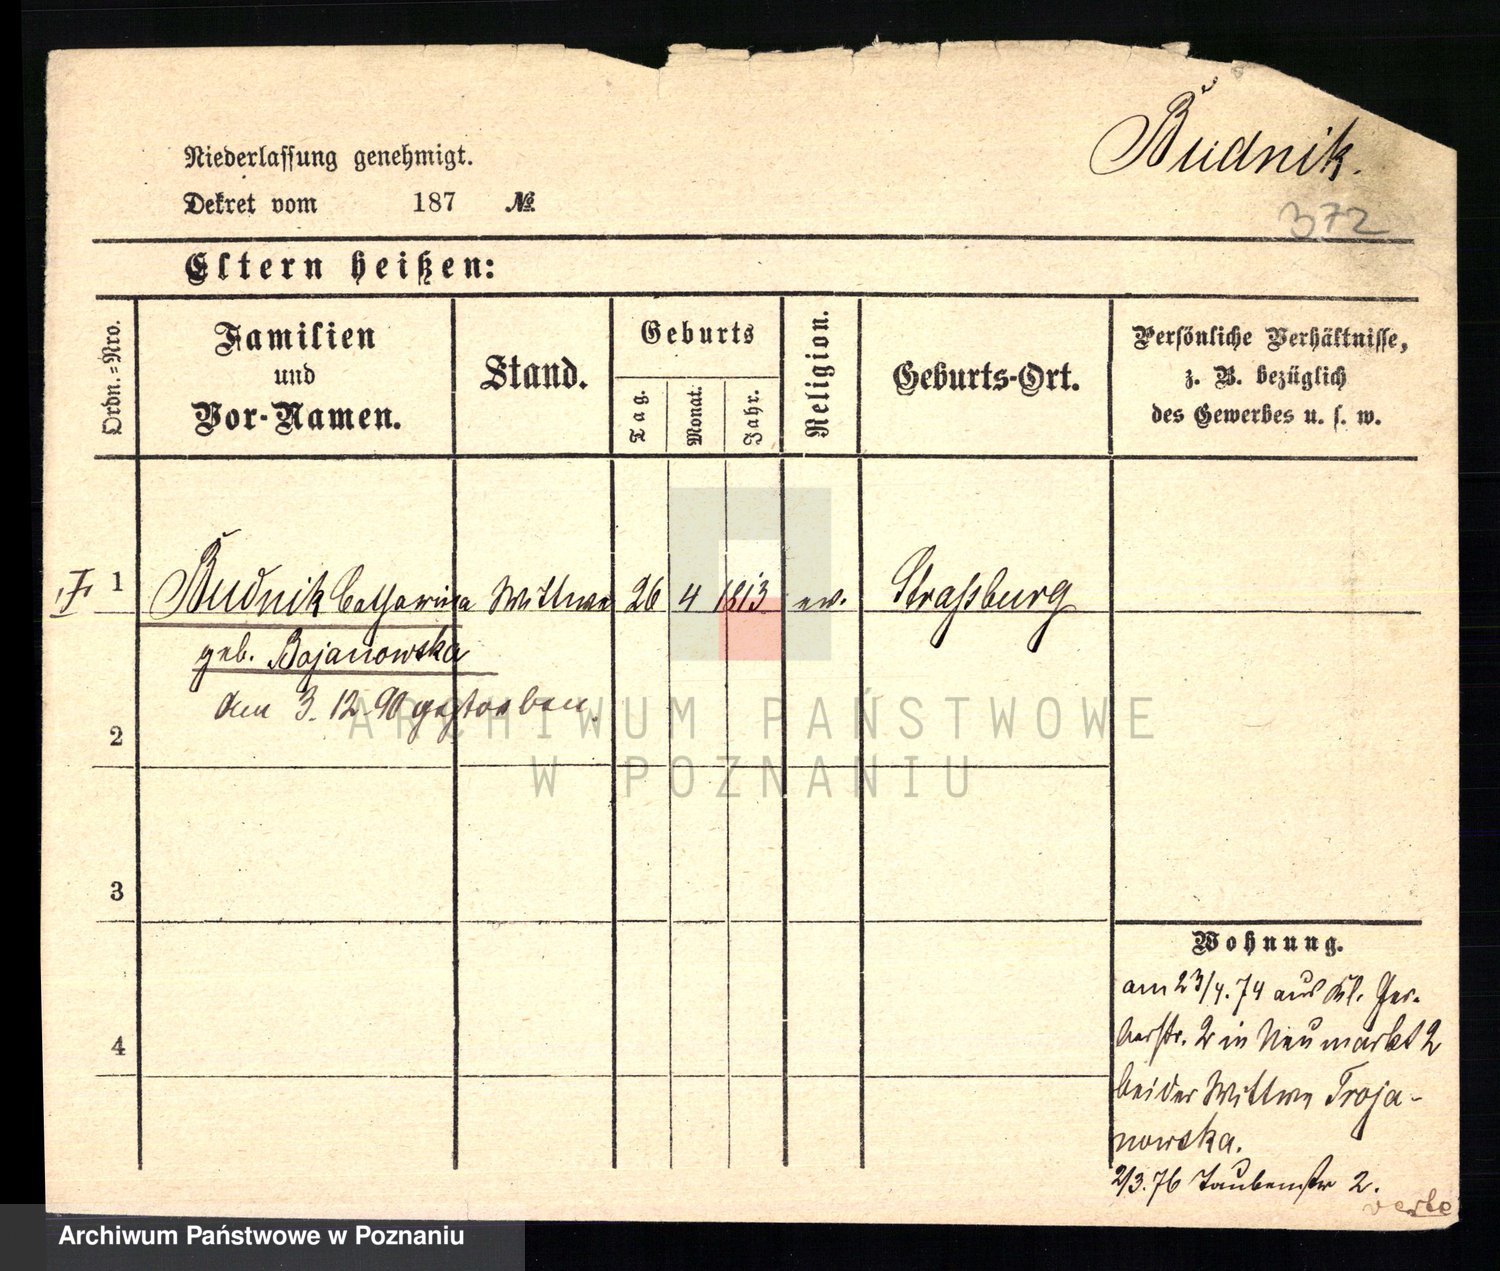 Budnik.
372
Niederlassung genehmigt.
Dekret vom 187 №
Eltern heißen:
Ordn.-Nro.
Familien und Vor-Namen.
Stand.
Geburts
Tag.
Monat.
Jahr.
Religion.
Geburts-Ort.
Persönliche Verhältnisse,
z. B. bezüglich
des Gewerbes u. s. w.
1 Budnik Catharina Wittwe 26 4 1813 ev. Straßburg
geb. Bojanowska
am 3. 12. 90 gestorben.
2
3
4
Wohnung.
am 23/4. 74 aus Kl. Ger-
berstr. 2 in Neumarkt 2
bei der Wittwe Troja-
nowska.
2/3. 76 Taubenstr 2.
verte
ARCHIWUM PAŃSTWOWE
W POZNANIU
Archiwum Państwowe w Poznaniu